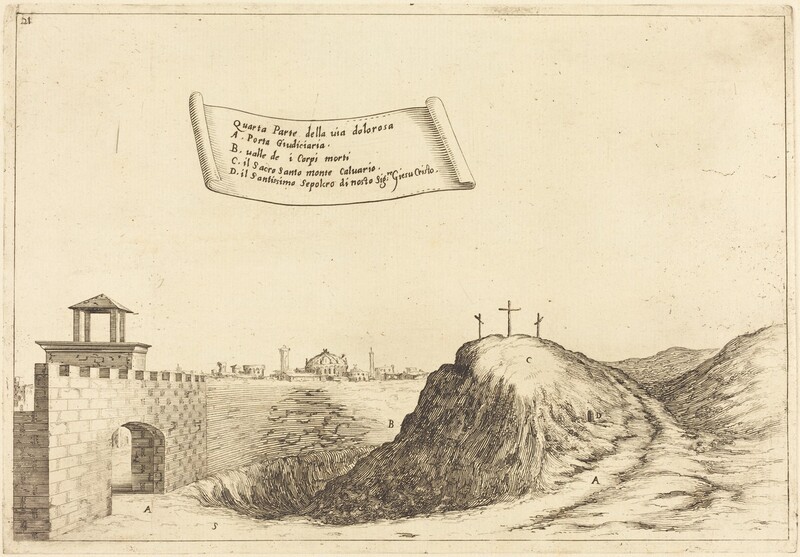 21
Quarta Parte della uia dolorosa
A. Porta Giudiciaria.
B. ualle de i Corpi morti
C. il Sacro Santo monte Caluario.
D. il Santissimo Sepolcro di nostō Sig.re Giesu Cristo.
C
D
B
A
A
S